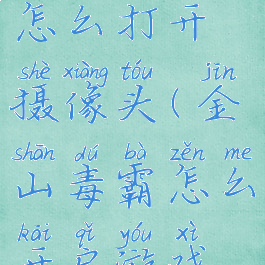 怎么打开
shè xiàng tóu jīn
摄像头(金
shān dú bà zěn me
山毒霸怎么
kāi qǐ yóu xì
开启游戏